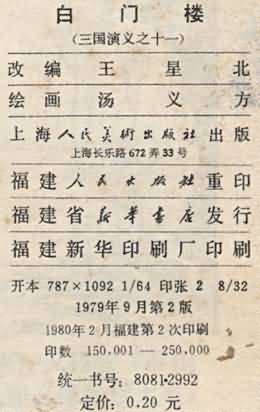 白门楼
(三国演义之十一)
改编 王星北
绘画 汤义方
上海人民美術出版社出版
上海长乐路672弄33号
福建人民出版社重印
福建省新华書店发行
福建新华印刷厂印刷
开本 787×1092 1/64 印张 2 8/32
1979年9月第2版
1980年2月福建第2次印刷
印数 150,001 — 250,000
统一书号: 8081·2992
定价: 0.20 元